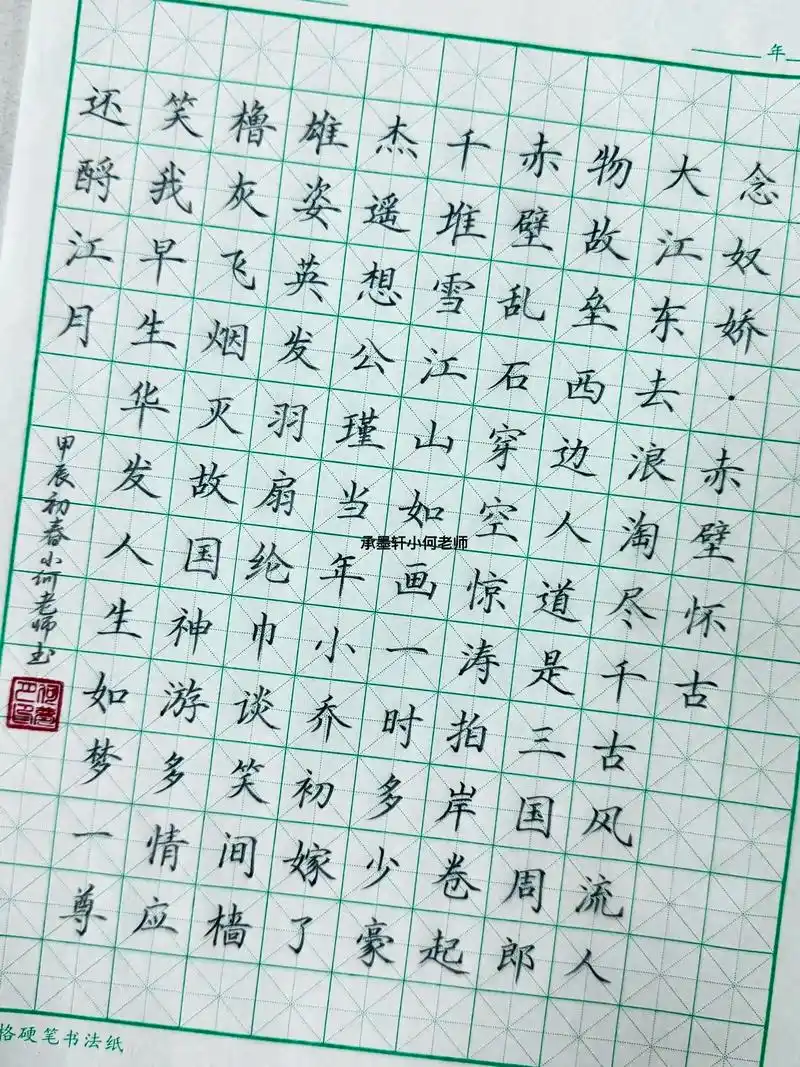 年
念奴娇·赤壁怀古
大江东去浪淘尽千古风流人
物故垒西边人道是三国周郎
赤壁乱石穿空惊涛拍岸卷起
千堆雪江山如画一时多少豪
杰遥想公瑾当年小乔初嫁了
雄姿英发羽扇纶巾谈笑间樯
橹灰飞烟灭故国神游多情应
笑我早生华发人生如梦一尊
还酹江月
甲辰初春小何老师书
承墨轩小何老师
格硬笔书法纸